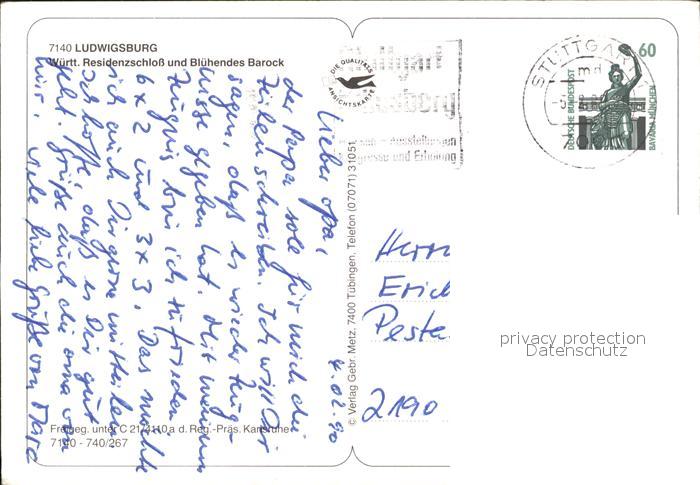 7140 LUDWIGSBURG
Württ. Residenzschloß und Blühendes Barock
DIE QUALITÄTS
ANSICHTSKARTE
Ausstellungen
und Erholung
STUTTGART
60
DEUTSCHE BUNDESPOST
BAVARIA MÜNCHEN
4.02.90
Lieber Opa,
der Papa sole für mich die
Zeilen schreiben. Ich will Dir
sagen, daß es wieder Zeug-
nisse gegeben hat. Mit meinem
Zeugnis bin ich zufrieden
6 x 2 und 3 x 3. Das möchte
ich auch Dir gerne mitteilen.
Ich hoffe, daß es Dir gut
geht. Grüße auch die Oma von
mir. Viele liebe Grüße von
© Verlag Gebr. Metz, 7400 Tübingen, Telefon (07071) 31051
Herrn
Erich
Pesta
2190
Freigeg. unter C 21/4110 a d. Reg.-Präs. Karlsruhe
7140 - 740/267
privacy protection
Datenschutz